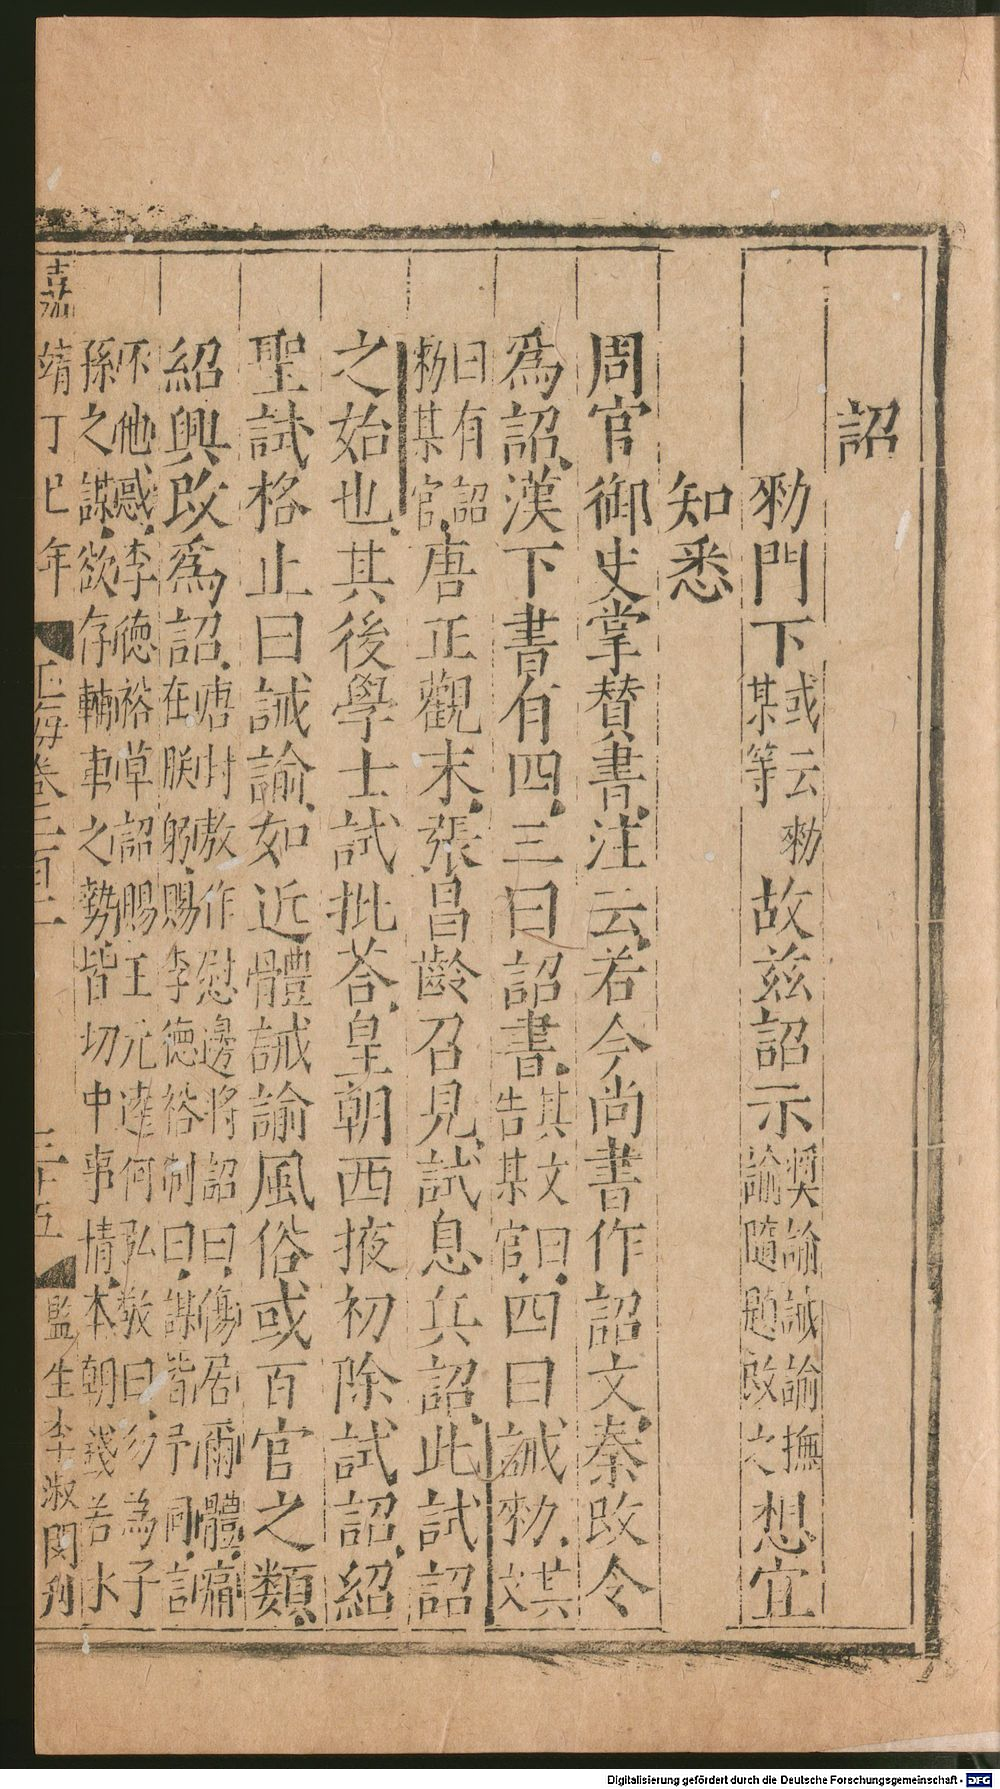 詔
勑門下或云勑某等故兹詔示奬諭誡諭撫諭隨題改之想宜
知悉
周官御史掌贊書注云若今尚書作詔文秦改令
爲詔漢下書有四三曰詔書其文曰告某官四曰誡勑其文
曰有詔勑某官唐正觀末張昌齡召見試息兵詔此試詔
之始也其後學士試批荅皇朝西掖初除試詔紹
聖試格止曰誡諭如近體誡諭風俗或百官之類
紹興改爲詔唐封敖作慰邊將詔曰傷居爾體痛在朕躬賜李德裕制曰謀皆予同言
不他惑李德裕草詔賜王元逵何弘敬曰勿為子孫之謀欲存輔車之勢皆切中事情本朝幾若水
嘉靖丁巳年 玉海卷二百二 三十五 監生李淑閔刋
Digitalisierung gefördert durch die Deutsche Forschungsgemeinschaft - DFG